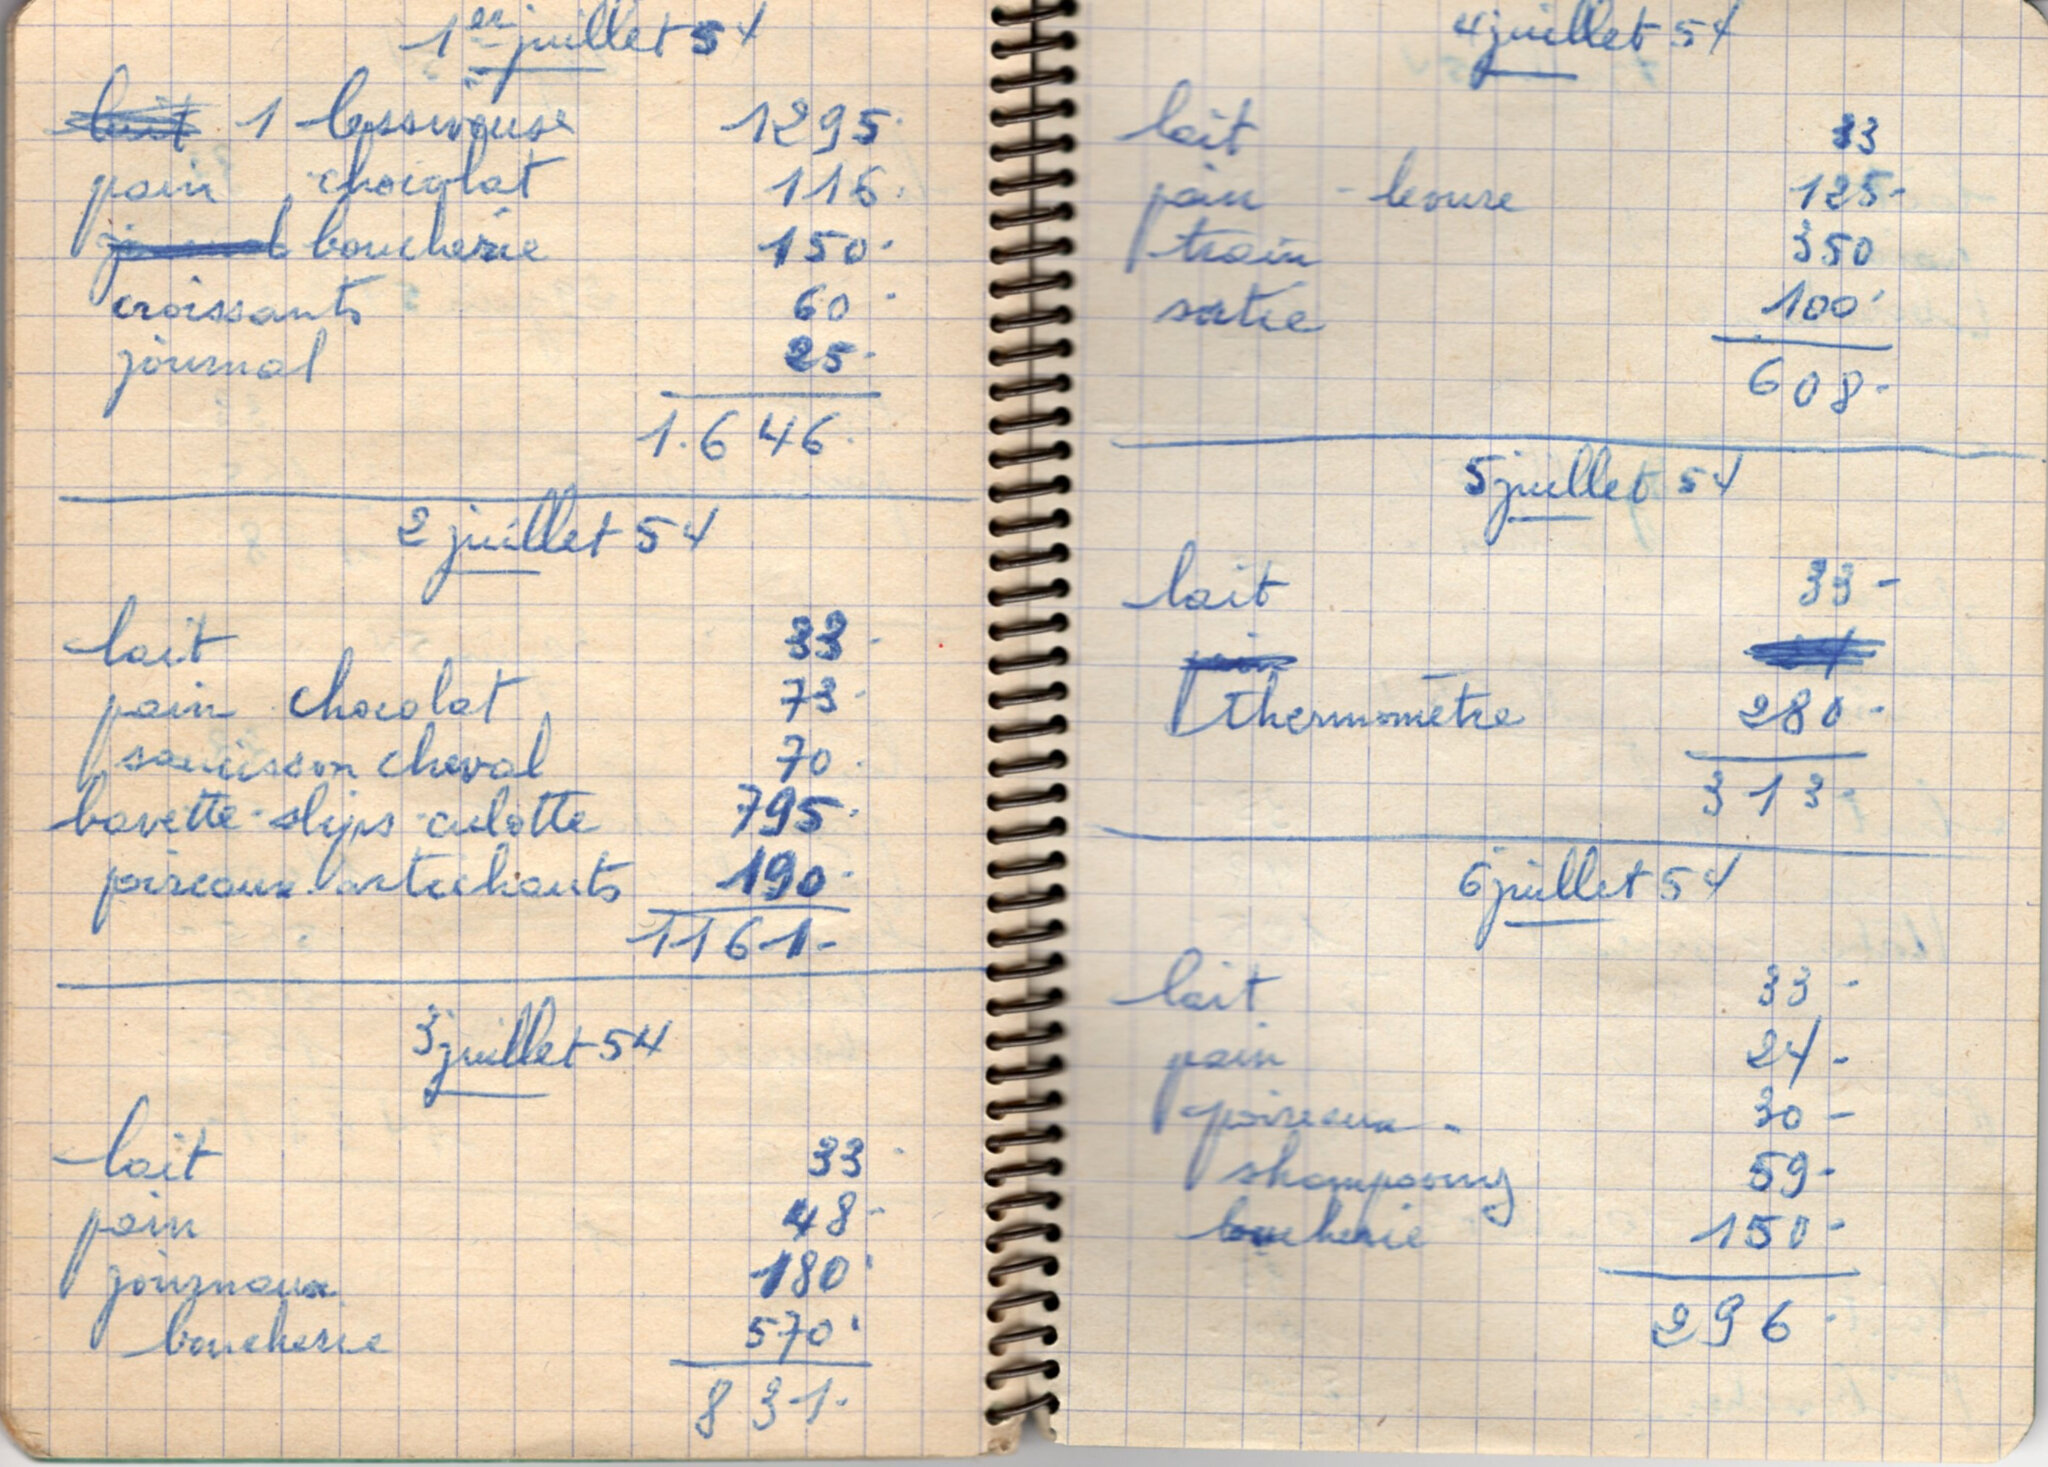 1er juillet 54
lait 1 lessiveuse 1295.
pain chocolat 116.
journal boucherie 150.
croissants 60.
journal 25.
1.646.
2 juillet 54
lait 33.
pain chocolat 73.
saucisson cheval 70.
bavette - slips culotte 795.
poireaux artichauts 190.
1161.-
3 juillet 54
lait 33.
pain 48-
journaux 180.
boucherie 570.
831.
4 juillet 54
lait 33
pain - levure 125-
train 350
satie 100.
608-
5 juillet 54
lait 33-
pain 24
thermomètre 280-
313-
6 juillet 54
lait 33-
pain 24-
poireaux - 30-
shampooing 59-
boucherie 150-
296.